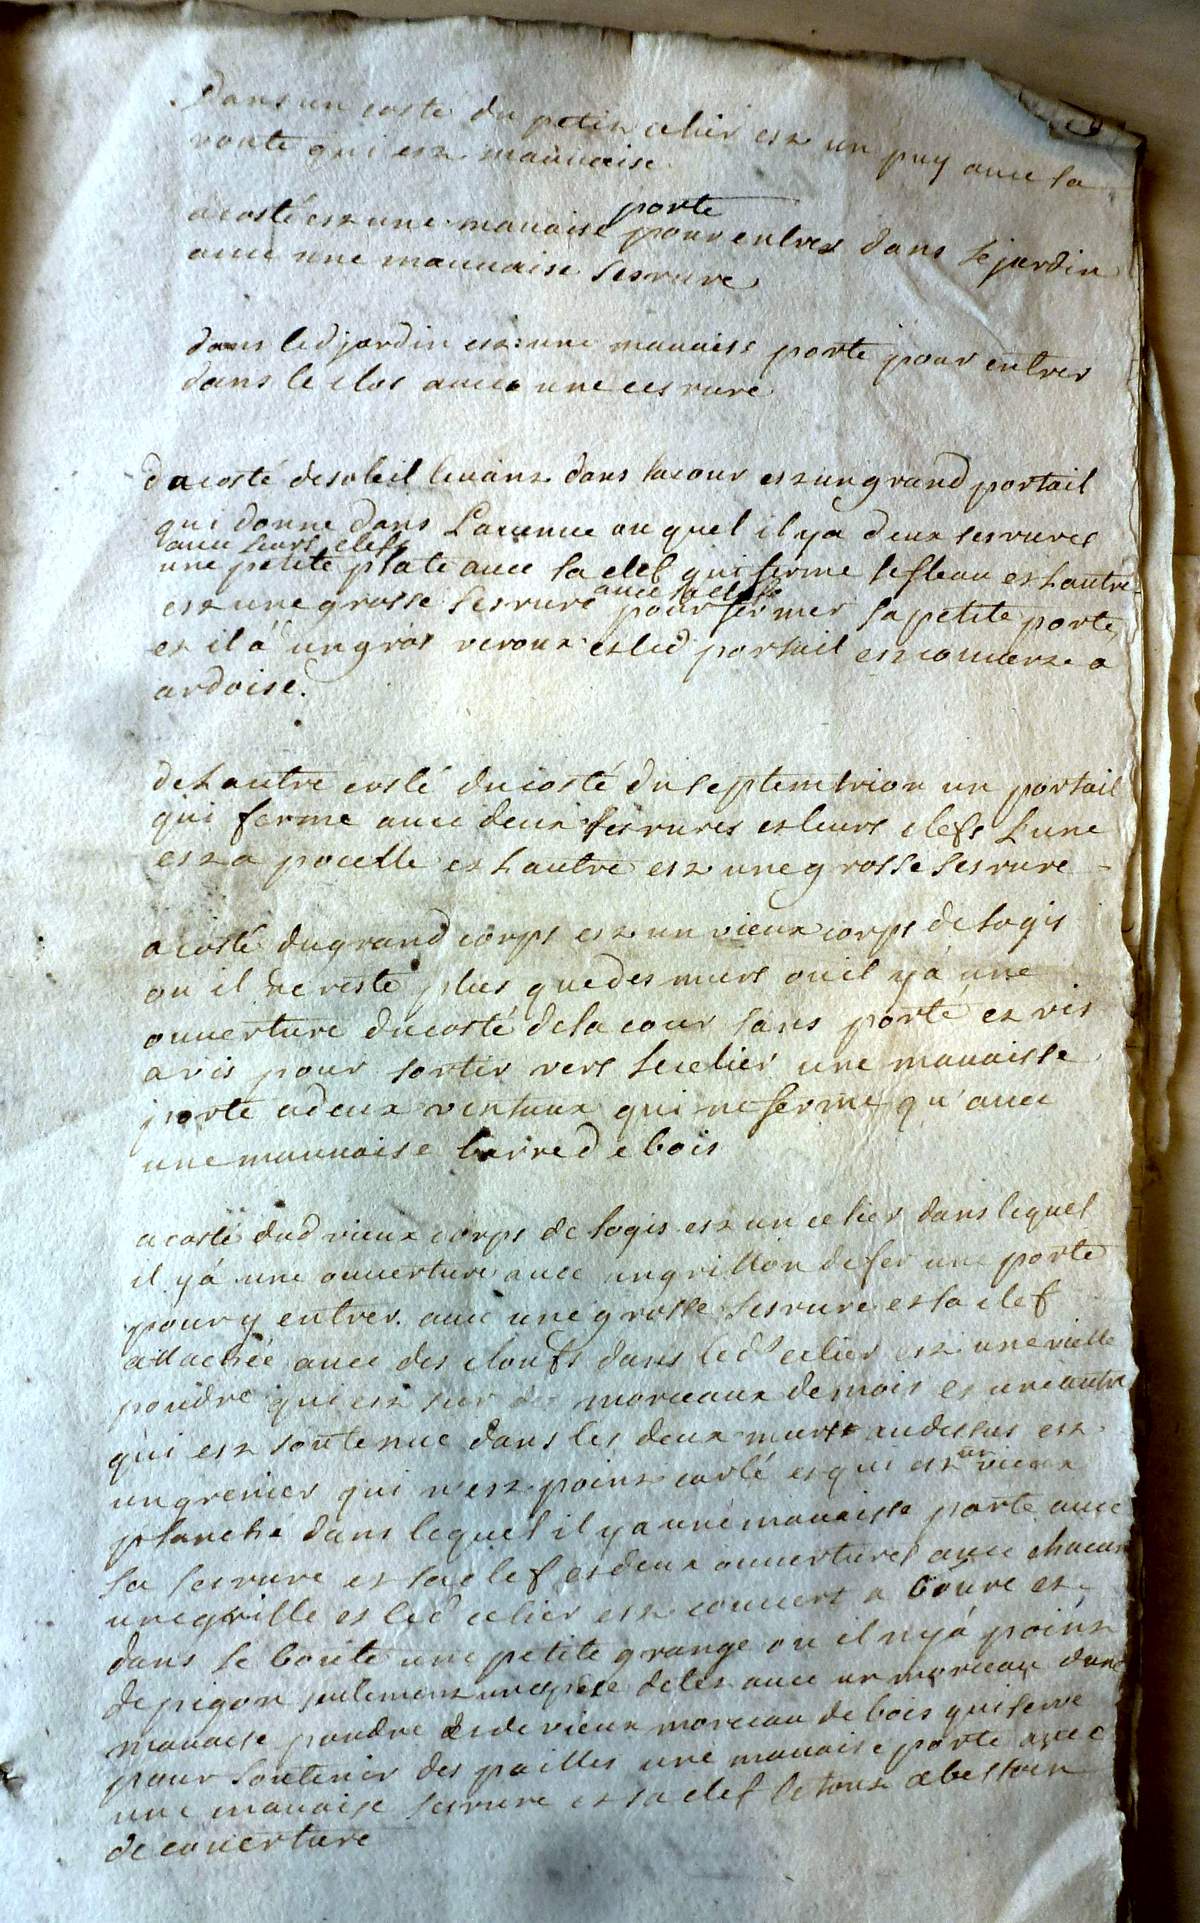 Dans un costé du petit celier est un puy avec la
voute qui est mauvaise
a costé est une mauvaise porte pour entrer dans le jardin
avec une mauvaise serrure
dans led jardin est une mauvaise porte pour entrer
dans le clos avec une cerrure
du costé de soleil levant dans la cour est un grand portail
qui donne dans l'avenue au quel il y a deux serrures
avec leurs clefs
une petite plate avec la clef qui ferme le fleau et l'autre
est une grosse serrure avec sa clef pour fermer la petite porte
et il a un gros veroux et led portail est couvert a
ardoise.
de l'autre costé du costé du septemtrion un portail
qui ferme avec deux serrures et leurs clefs l'une
est a pocelle et l'autre est une grosse serrure
a costé du grand corps est un vieux corps de logis
ou il ne reste plus que des murs ou il y a une
ouverture du costé de la cour sans porte et vis
a vis pour sortir vers le celier une mauvaisse
porte a deux ventaux qui ne ferme qu'avec
une mauvaise barre de bois
a costé dud vieux corps de logis est un celier dans lequel
il y á une ouverture avec un grillon de fer une porte
pour y entrer. avec une grosse serrure et sa clef
attachée avec des cloufs dans led celier est une vielle
poudre qui est sur des morceaux de mois et une autre
qui est soutenue dans les deux murs au dessus est
un grenier qui n'est point carlé et qui est un vieux
planché dans lequel il y a une mauvaisse porte avec
sa serrure et sa clef et deux ouvertures avec chacun
une grille et led celier est couvert a
dans le boute une petite grange ou il n'y á point
de pigon seulement une de avec un morceau d'une
mauvaise poudre et de vieux morceau de bois qui serve
pour soutenir des pailles une mauvaise porte avec
une mauvaise serrure et sa clef le tout a besstoin
de couverture